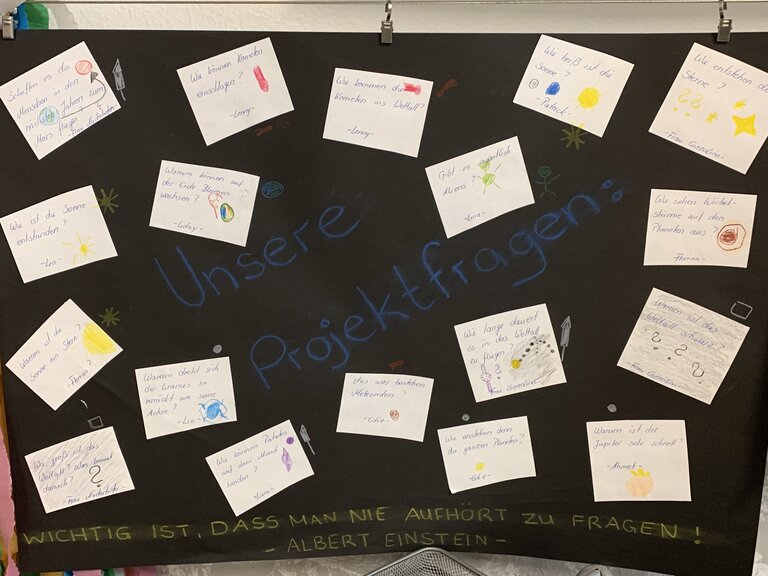 Schaffen es die
Menschen in den
nächsten Jahren zum
Mars fliegen?
Wie können Kometen
einschlagen?
-Lenny-
Wie kommen die
Kometen ins Weltall?
-Lenny-
Wie heiß ist die
Sonne?
-Patrick-
Wie entstehen die
Sterne?
-Frau Cossolino-
Wie ist die Sonne
entstanden?
-Lea-
Warum können auf
der Erde Blumen
wachsen?
Gibt es eigentlich
Aliens?
-Lara-
Wie sehen Wirbel-
stürme auf den
Planeten aus?
-Florian-
Unsere
Projektfragen:
Warum ist die
Sonne ein Stern?
-Florian-
Warum dreht sich
der Uranus so
verrückt um seine
Achse?
-Lea-
Wie lange dauert
es in das Weltall
zu fliegen?
-Frau Cossolino-
Warum ist das
Weltall schwarz?
-Frau Cossolino-
Wie groß ist das
Weltall? Was kommt
danach?
Wie können Raketen
auf dem Mond
landen?
-Lara-
Aus was bestehen
Meteoriden?
-Edie-
Wie enstehen denn
die ganzen Planeten?
-Edie-
Warum ist der
Jupiter sehr schnell?
-Ahmet-
WICHTIG IST, DASS MAN NIE AUFHÖRT ZU FRAGEN!
- ALBERT EINSTEIN -